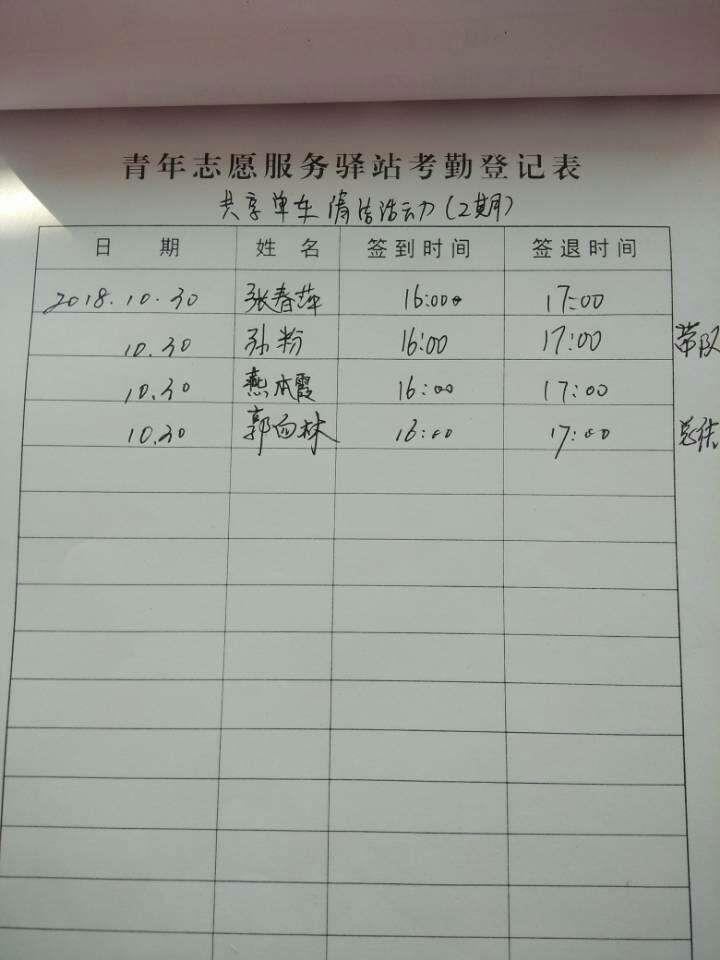 青年志愿服务驿站考勤登记表
共享单车清洁活动(2期)
日 期 姓 名 签到时间 签退时间
2018.10.30 张春萍 16:00 17:00
10.30 孙粉 16:00 17:00 带队
10.30 燕本霞 16:00 17:00
10.30 郭向林 16:00 17:00 总结